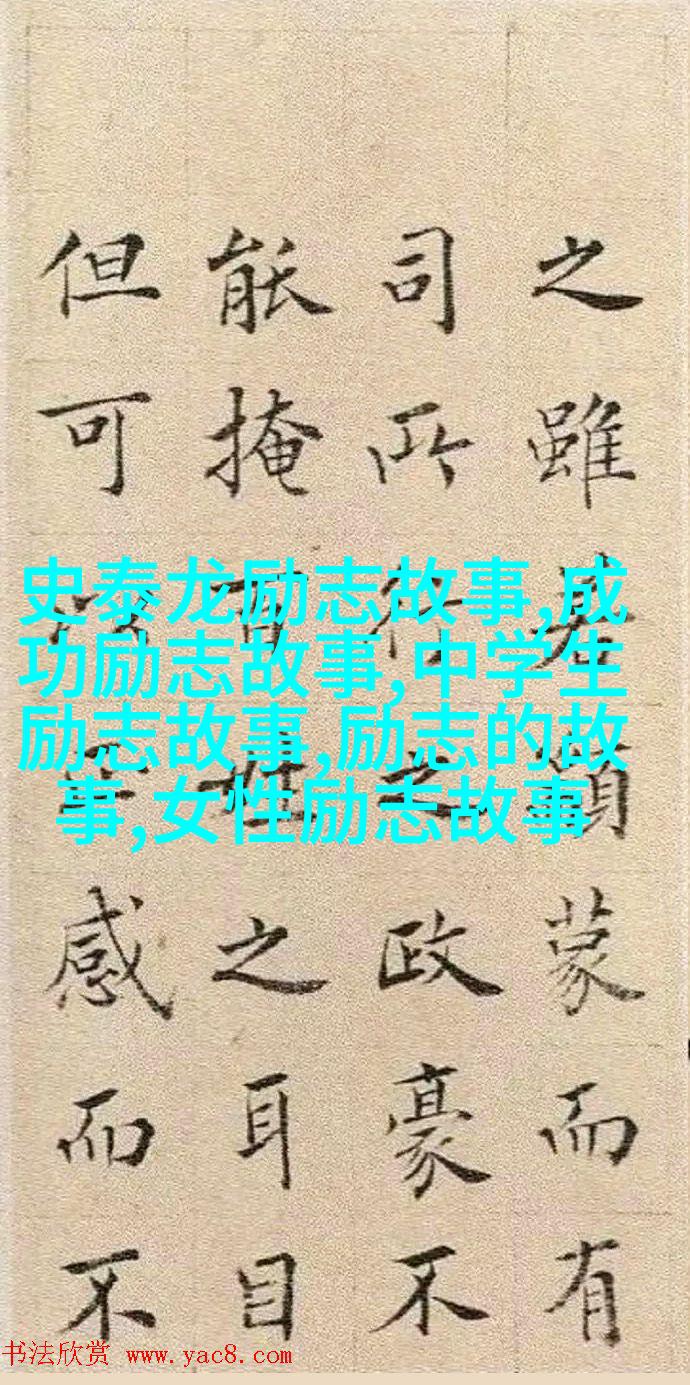 之雖若頑蒙而有
司所行之政豪不
能掩百姓之耳目
但可以感而不
史泰龙励志故事,成
功励志故事,中学生
励志故事,励志的故
事,女性励志故事
书法欣赏 www.yac8.com